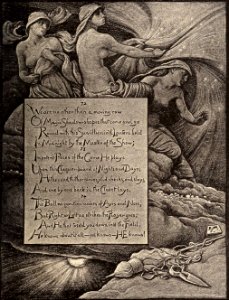 We are no other than a moving row
Of Magic Shadow-shapes that come and go
Round with this Sun-illumin'd Lantern held
In Midnight by the Master of the Show;
Impotent Pieces of the Game He plays
Upon this Chequer-board of Nights and Days;
Hither and thither moves, and checks, and slays,
And one by one back in the Closet lays.
The Ball no question makes of Ayes and Noes,
But Right or Left as strikes the Player goes;
And He that toss'd you down into the Field,
He knows about it all—He knows—HE knows!